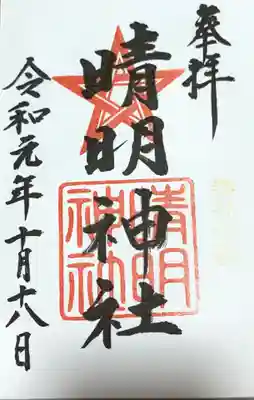 奉拝
晴明神社
晴明
神社
令和元年十月十八日